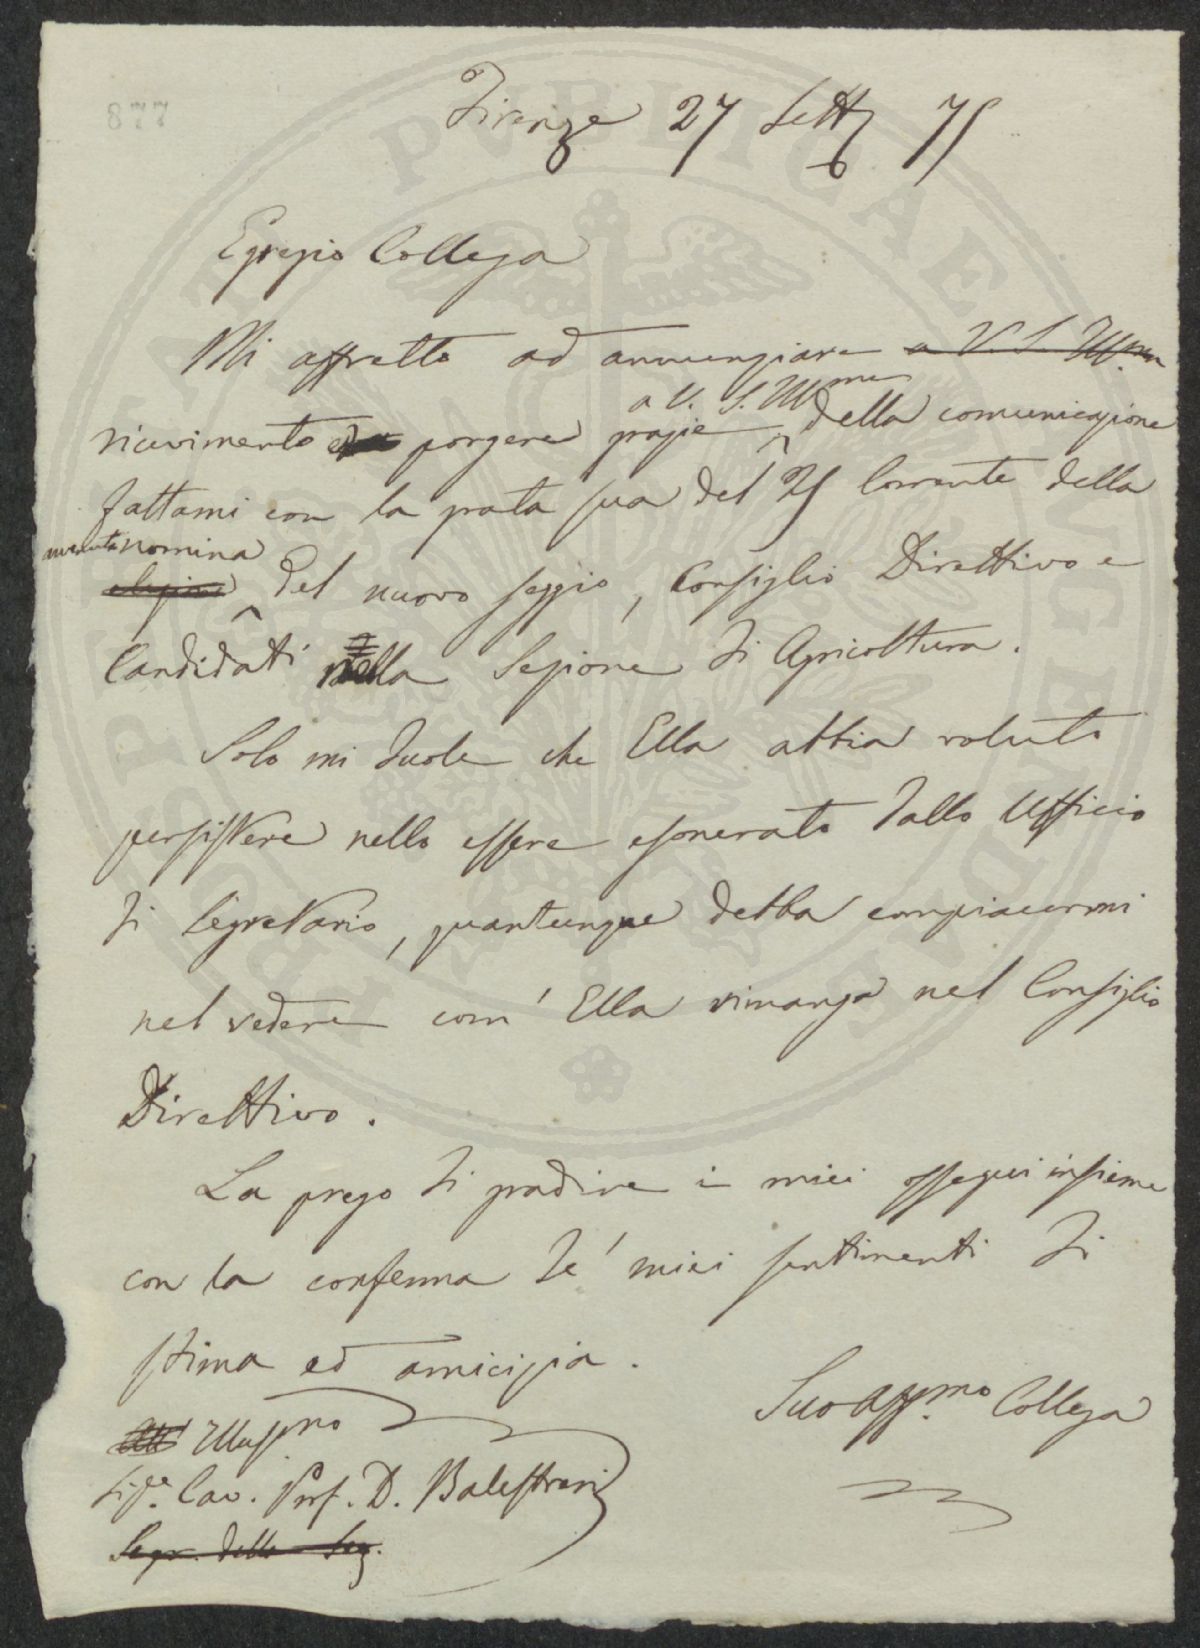 877
Firenze 27 Sett 75
Egregio Collega
Mi affretto ad annunziare a V. S. Ill.ma
a V. S. Ill.ma
ricevimento e porgere grazie della comunicazione
fattami con la grata sua del 25 Corrente della
avvenuta nomina
elezione del nuovo seggio, Consiglio Direttivo e
Candidati nella Sezione di Agricoltura.
Solo mi duole che Ella abbia voluto
persistere nello essere esonerato dallo Ufficio
di Segretario, quantunque debba compiacermi
nel vedere com' Ella rimanga nel Consiglio
Direttivo.
La prego di gradire i miei ossequi insieme
con la conferma de' miei sentimenti di
stima ed amicizia.
Suo Aff.mo Collega
Illus.mo
Sig.e Cav. Prof. D. Balestreri
Segr. della Sez.